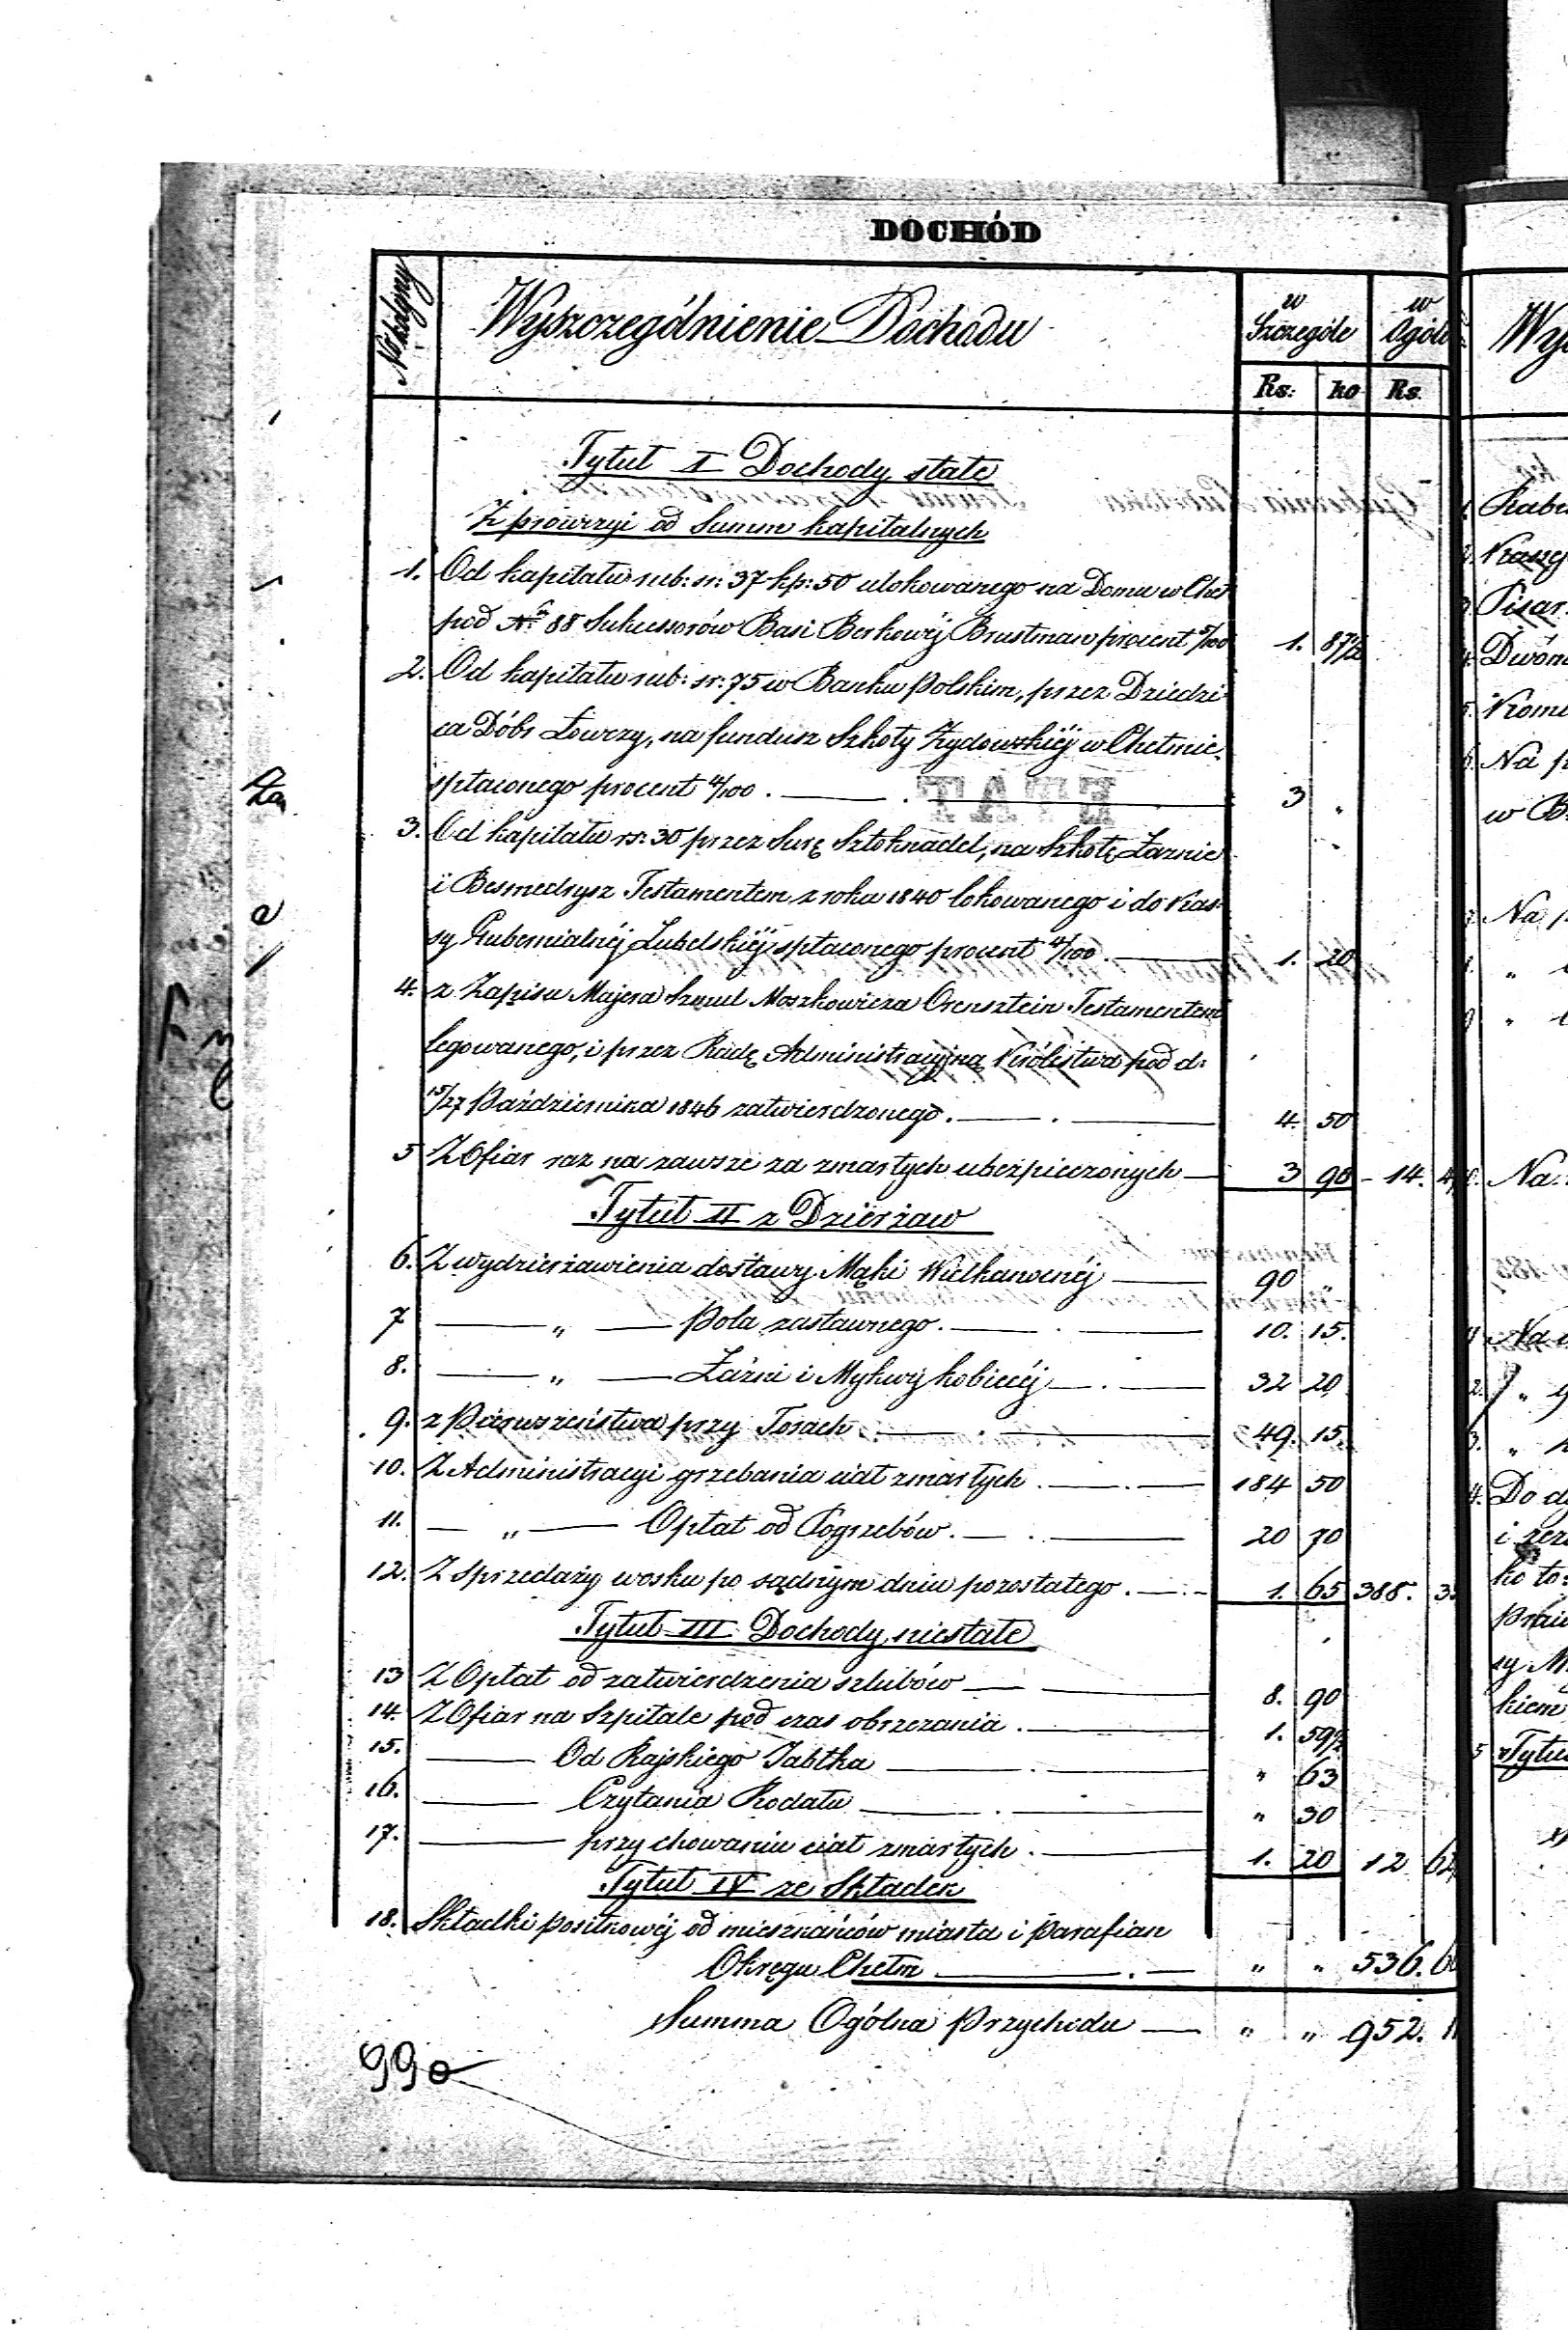 DOCHÓD
Wyszczególnienie Dochodu
w Szczególe
w Ogóle
Rs: ko Rs.
Tytuł I Dochody stałe
Z prowizyi od Summ kapitalnych
1. Od kapitału rub: sr: 37 kp: 50 ulokowanego na Domu w Cheł
pod Nr 88 Sukcessorów Basi Berkowéy Brustman procent 5/100 1. 87½
2. Od kapitału rub: sr: 75 w Banku Polskim, przez Dziedzi
ca Dóbr Łowczy, na fundusz Szkoły Żydowskiéj w Chełmie
spłaconego procent 4/100 . — . — 3 „
3. Od kapitału rs: 30 przez Surę Sztoknadel, na Szkołę Łaznie
i Besmedrysz Testamentem z roku 1840 lokowanego i do Kas
sy Gubernialnéj Lubelskiéj spłaconego procent 4/100 . — 1. 20
4. z Zapisu Majera Szmul Moszkowicza Orensztein Testamentem
legowanego, i przez Radę Administracyjną Królestwa pod d:
15/27 Października 1846 zatwierdzonego . — . — 4. 50
5 Z Ofiar raz na zawsze za zmarłych ubezpieczonych — 3 90 - 14.
Tytuł II z Dzierżaw
6. Z wydzierżawienia dostawy Mąki Wielkanocnéj — 90 „
7 — „ — Pola zastawnego . — . — 10. 15.
8. — „ — Łaźni i Mykwy kobiecéj — . — 32 20
9. z Pierwszeństwa przy Torach — . — 49. 15.
10. Z Administracyi grzebania ciał zmarłych . — . — 184 50
11. — „ — Opłat od Pogrzebów . — . — 20 70
12. Z sprzedaży wosku po sądnym dniu pozostałego . — . — 1. 65 388.
Tytuł III Dochody niestałe
13 Z Opłat od zatwierdzenia szlubów — — 8. 90
14. Z Ofiar na Szpitale pod czas obrzezania . — 1. 59½
15. — Od Rajskiego Jabłka — . — „ 63
16. — Czytania Rodału — . — „ 30
17. — przy chowaniu ciał zmarłych . — 1. 20 12
Tytuł IV ze Składek
18. Składki posiłkowéj od mieszkańców miasta i Parafian
Okręgu Chełm — . — „ „ 536.
Summa Ogólna Przychodu — „ „ 952.
990